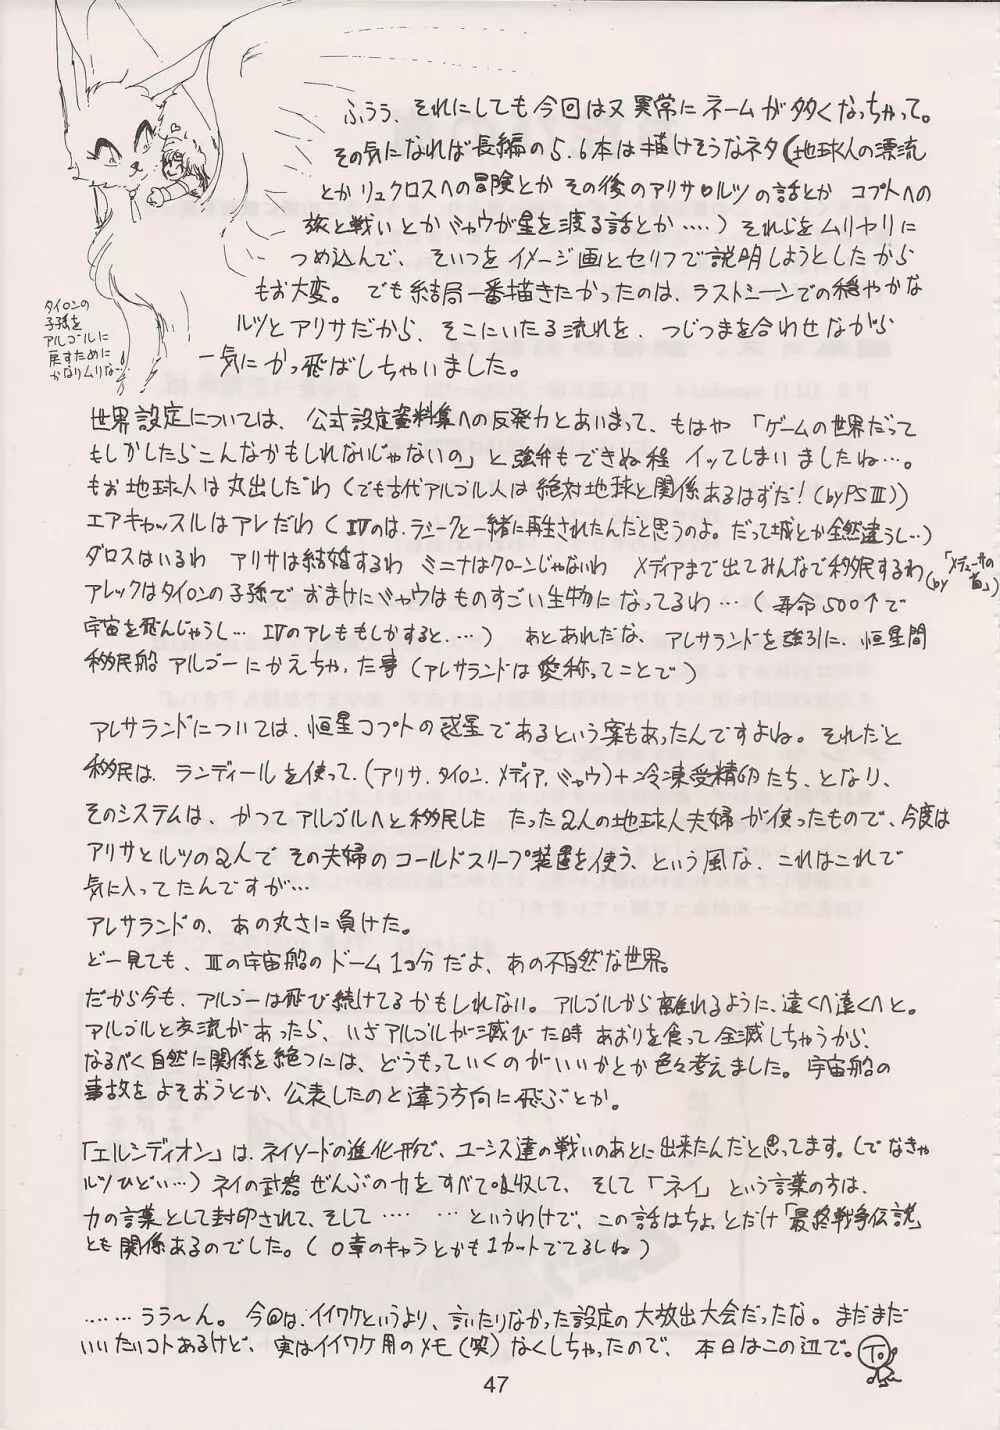 ふうぅ、それにしても今回は又異常にネームが多くなっちゃって。
その気になれば長編の5.6本は描けそうなネタ(地球人の漂流
とかリュクロスへの冒険とかその後のアリサ・ルツの話とか コプトへの
旅と戦いとかミャウが星を渡る話とか‥‥)それらをムリヤリに
つめ込んで、そいつをイメージ画とセリフで説明しようとしたから
もお大変。でも結局一番描きたかったのは、ラストシーンでの穏やかな
ルツとアリサだから、そこにいたる流れを、つじつまを合わせながら
一気にかっ飛ばしちゃいました。
タイロンの
子孫を
アルゴールに
戻すために
かなりムリな…!!
世界設定については、公式設定資料集への反発力とあいまって、もはや「ゲームの世界だって
もしかしたらこんなかもしれないじゃないの」と強弁もできぬ程 イッてしまいましたね…。
もお地球人は丸出しだわ(でも古代アルゴル人は絶対地球と関係あるはずだ!(by PSⅢ))
エアキャッスルはアレだわ(Ⅳのは、ラシークと一緒に再生されたんだと思うのよ。だって城とか全然違うし…)
ダロスはいるわ アリサは結婚するわ ミニナはクローンじゃないわ メディアまで出てみんなで移民するわ(by「メデューサの首」)
アレックはタイロンの子孫で おまけにミャウはものすごい生物になってるわ…(寿命500↑で
宇宙を飛んじゃうし… Ⅳのアレももしかすると‥‥)あとあれだな、アレサランドを強引に、恒星間
移民船アルゴーにかえちゃった事(アレサランドは愛称ってことで)
アレサランドについては、恒星コプトの惑星であるという案もあったんですよね。それだと
移民は、ランディールを使って、(アリサ.タイロン.メディア.ミャウ)+冷凍受精卵たち、となり、
そのシステムは、かつてアルゴルへと移民した たった2人の地球人夫婦が使ったもので、今度は
アリサとルツの2人で その夫婦のコールドスリープ装置を使う、という風な、これはこれで
気に入ってたんですが…
アレサランドの、あの丸さに負けた。
どー見ても、Ⅲの宇宙船のドーム1コ分だよ、あの不自然な世界。
だから今も、アルゴーは飛び続けてるかもしれない。アルゴルから離れるように、遠くへ遠くへと。
アルゴルと交流があったら、いざアルゴルが滅びた時あおりを食って全滅しちゃうから、
なるべく自然に関係を絶つには、どうもっていくのがいいかとか色々考えました。宇宙船の
事故をよそおうとか、公表したのと違う方向に飛ぶとか。
「エルシディオン」は、ネイソードの進化形で、ユーシス達の戦いのあとに出来たんだと思ってます。(でなきゃ
ルツひどい…)ネイの武器ぜんぶの力をすべて吸収して、そして「ネイ」という言葉の方は、
力の言葉として封印されて、そして‥‥ …というわけで、この話はちょっとだけ「最終戦争伝説」
とも関係あるのでした。(0章のキャラとかも1カットででてるしね)
……うう〜ん。今回は、イイワケというより、言いたりなかった設定の大放出大会だったな。まだまだ
いいたいコトあるけど、実はイイワケ用のメモ(笑)なくしちゃったので、本日はこの辺で。To
47